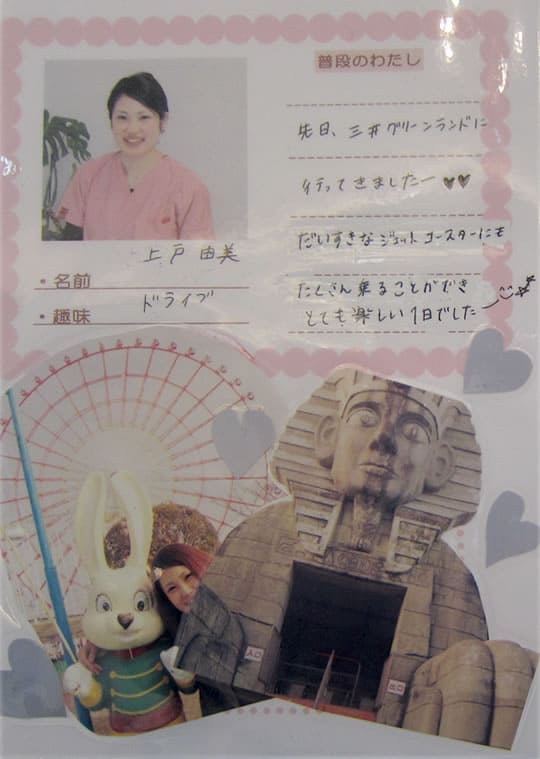 普段のわたし
先日、三井グリーンランドに
行ってきましたー♥♥
だいすきなジェットコースターにも
たくさん乗ることができ
とても楽しい1日でした
上戸 由美
・名前
ドライブ
・趣味
入口
出口